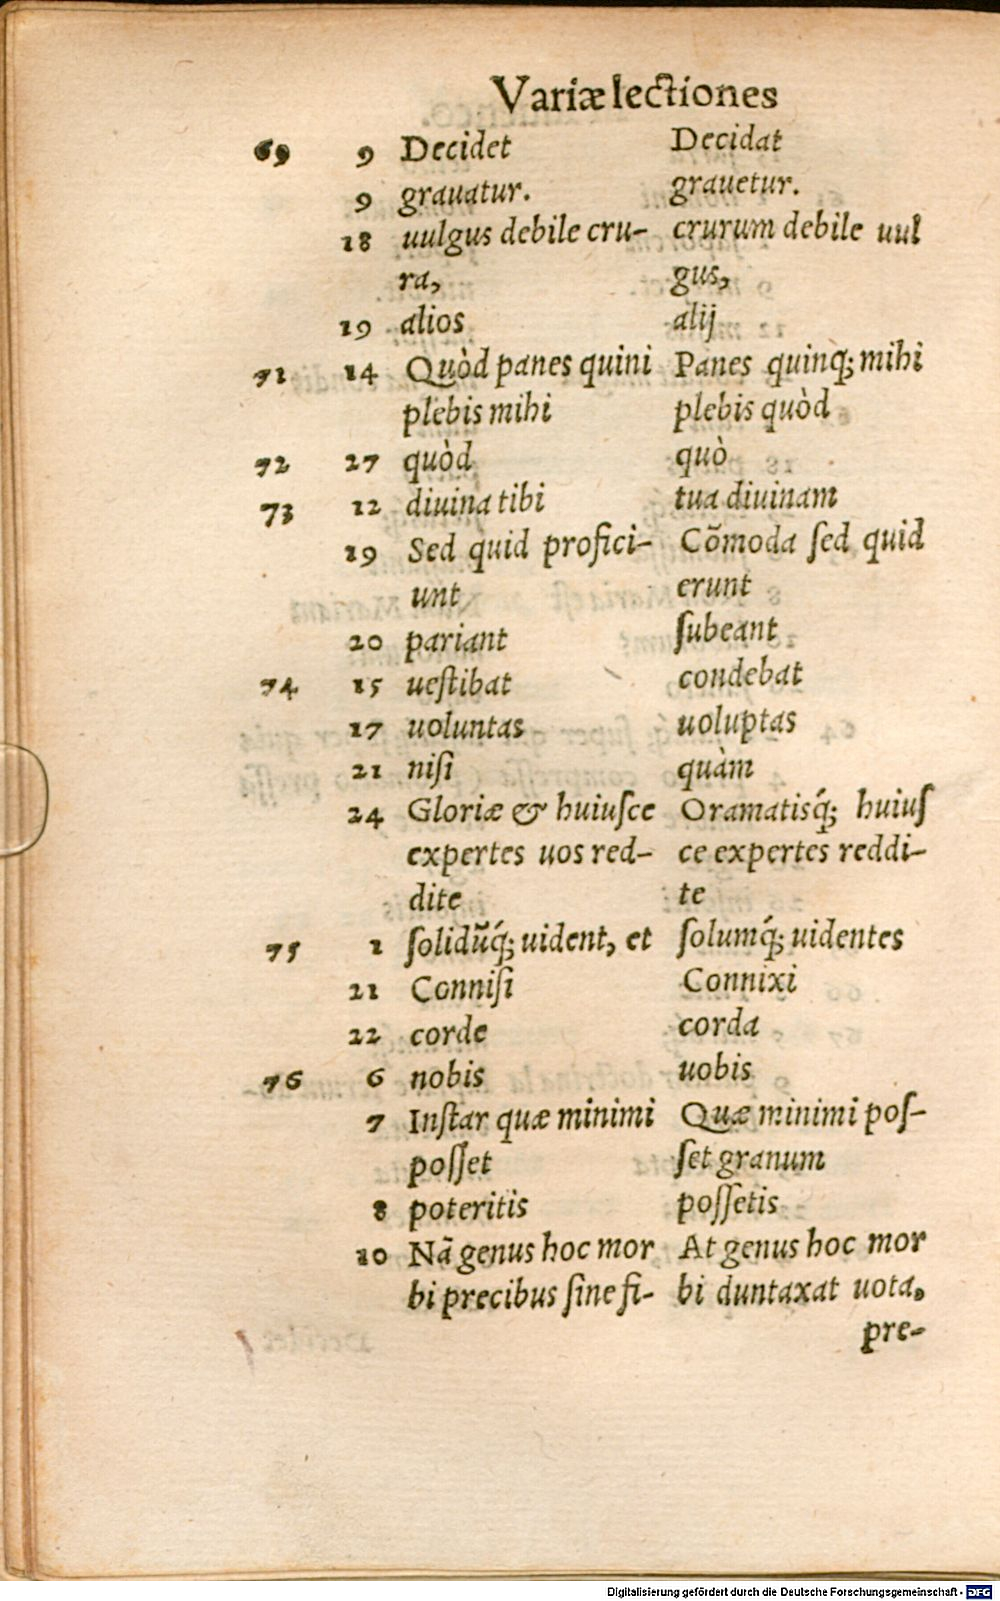 Variæ lectiones
69 9 Decidet Decidat
9 grauatur. grauetur.
18 uulgus debile cru- crurum debile uul
ra, gus,
19 alios alij
71 14 Quòd panes quini Panes quinq́; mihi
plebis mihi plebis quòd
72 27 quòd quò
73 12 diuina tibi tua diuinam
19 Sed quid profici- Cõmoda ſed quid
unt erunt
20 pariant ſubeant
74 15 ueſtibat condebat
17 uoluntas uoluptas
21 niſi quàm
24 Gloriæ & huiuſce Oramatisq́; huiuſ
expertes uos red- ce expertes reddi-
dite te
75 1 ſolidũq́; uident, et ſolumq́; uidentes
21 Conniſi Connixi
22 corde corda
76 6 nobis uobis
7 Inſtar quæ minimi Quæ minimi poſ-
poſſet ſet granum
8 poteritis poſſetis
10 Nã genus hoc mor At genus hoc mor
bi precibus ſine fi- bi duntaxat uota,
pre-
Digitalisierung gefördert durch die Deutsche Forschungsgemeinschaft - DFG